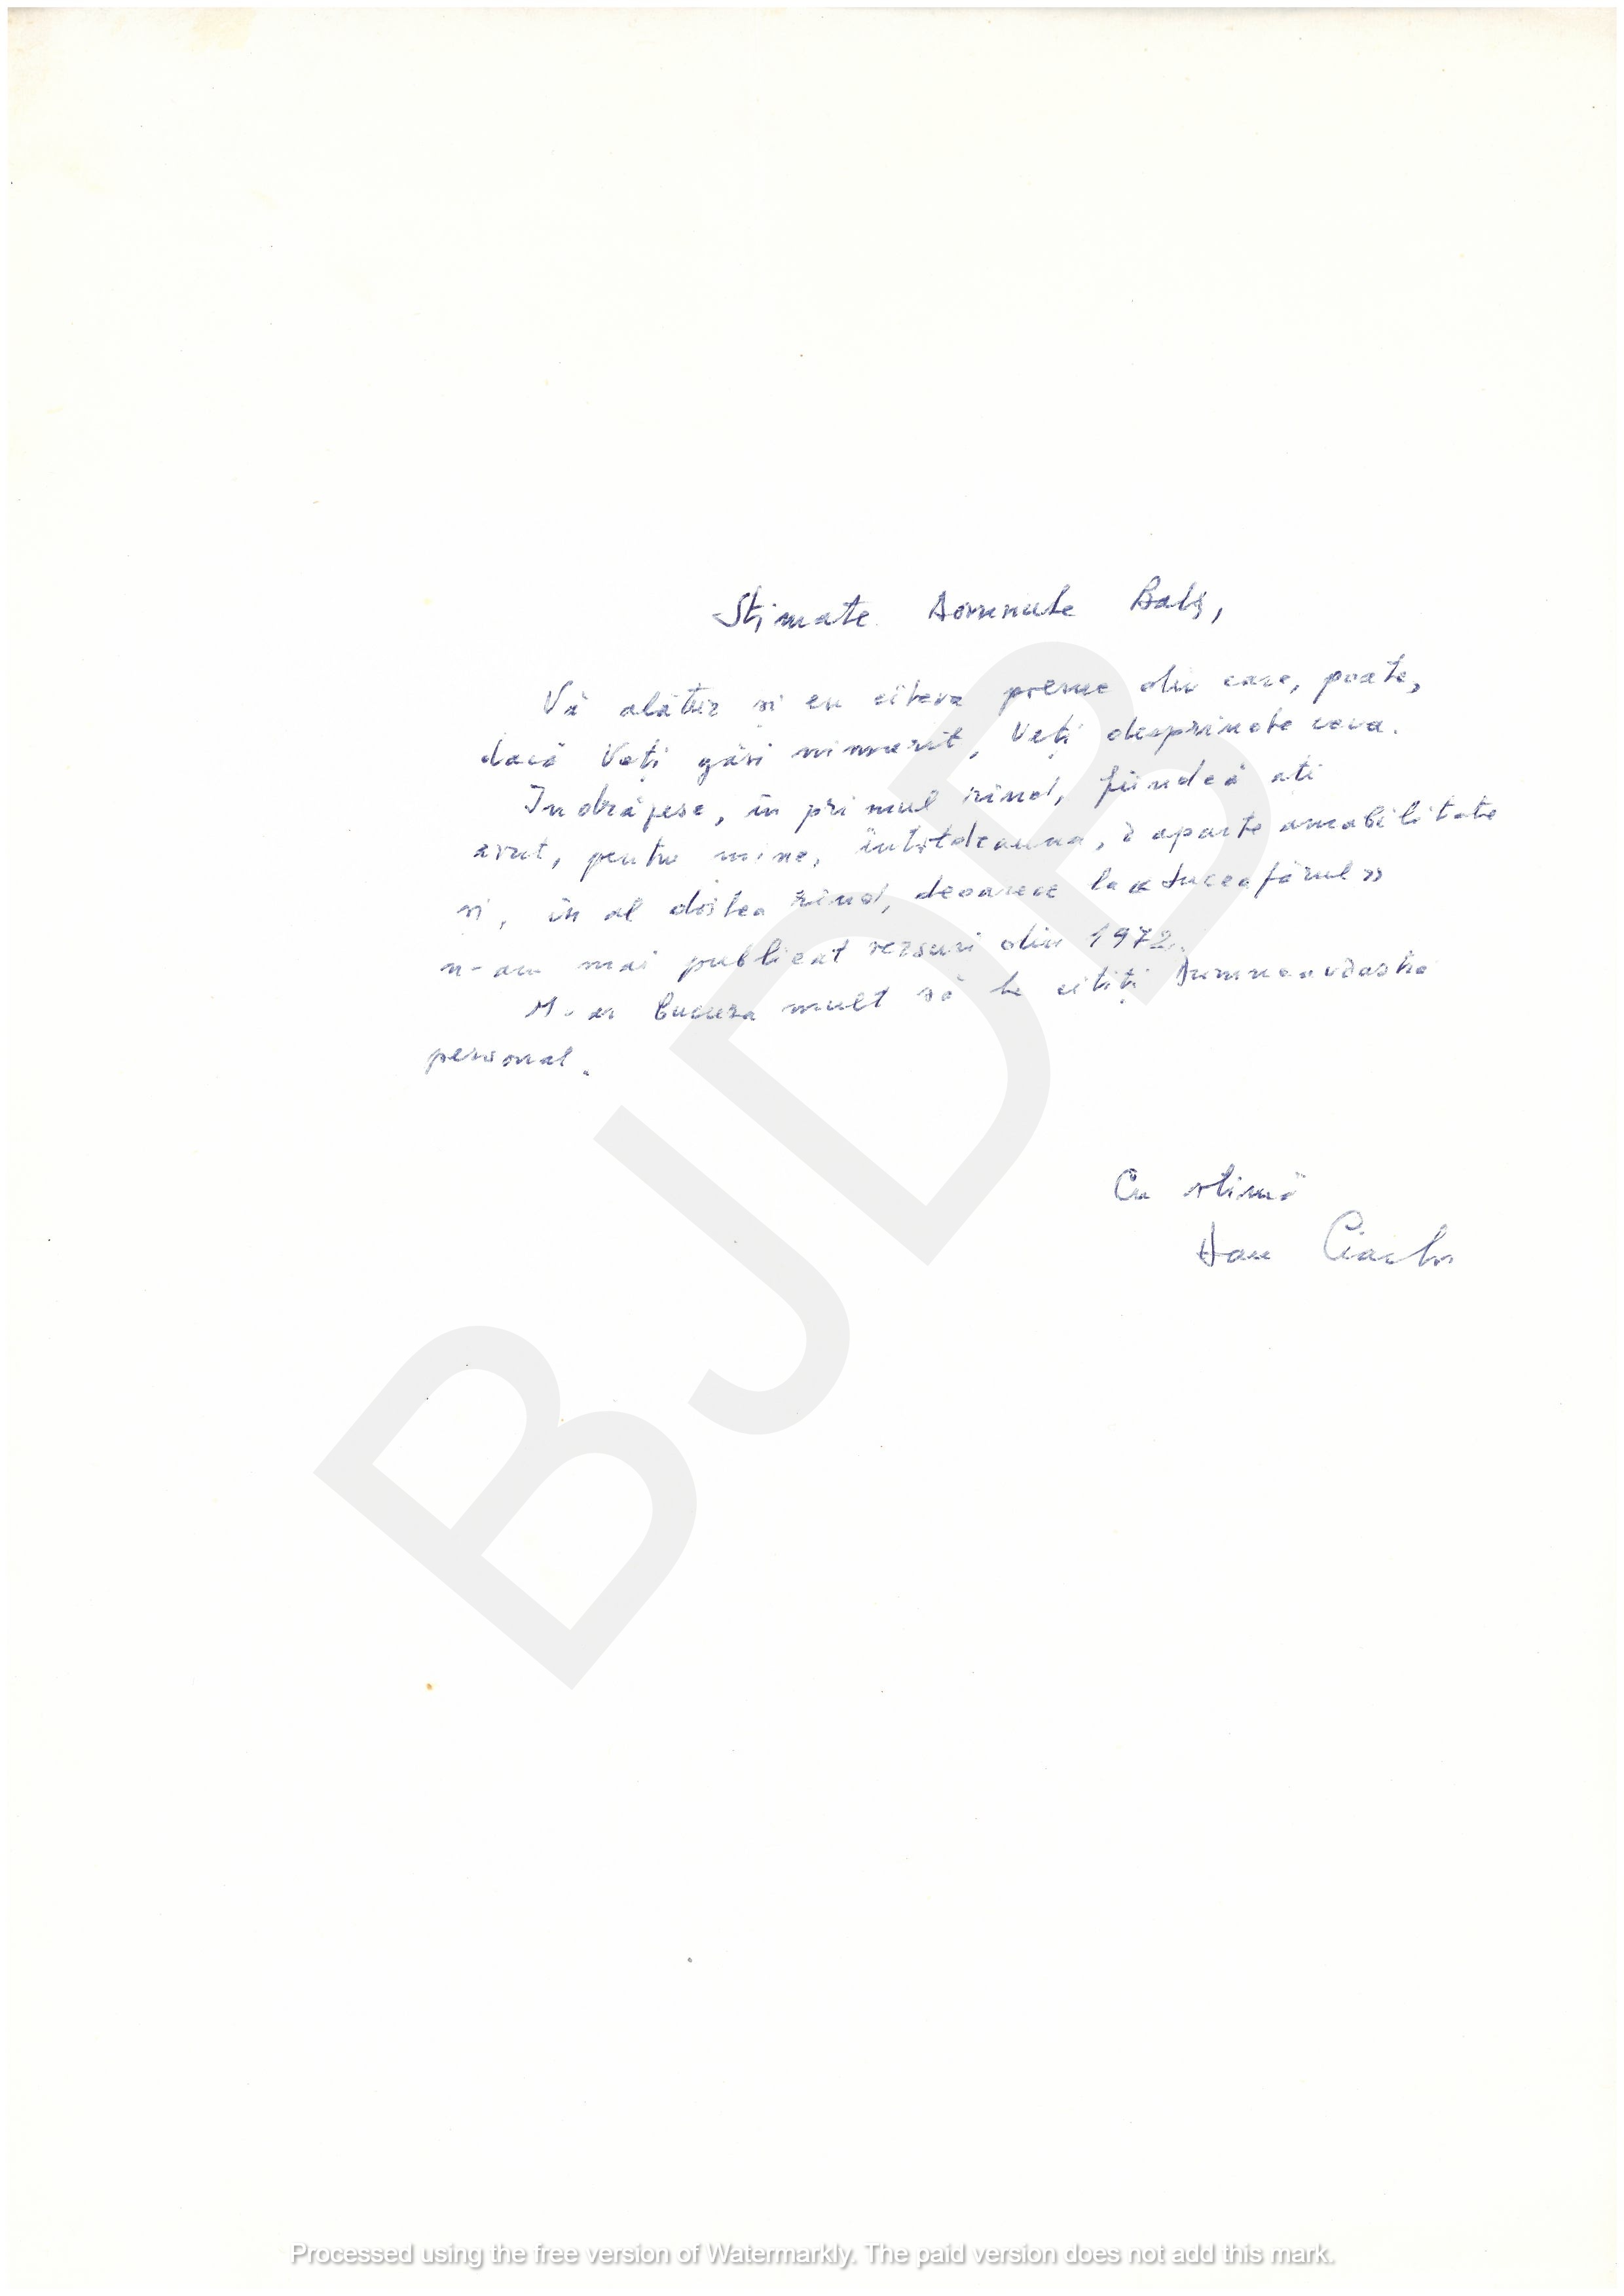 Stimate Domnule Balș,
Vă alătur și eu cîteva poeme din care, poate,
dacă Veți găsi nimerit, Veți desprinde ceva.
Indrăznesc, în primul rînd, fiindcă ați
avut, pentru mine, întotdeauna, o aparte amabilitate
și, în al doilea rînd, deoarece la «Luceafărul»
n-am mai publicat versuri din 1972.
M-ar bucura mult să le citiți Dumneavoastră
personal.
Cu stimă
Dan Ciachir
BJDB
Processed using the free version of Watermarkly. The paid version does not add this mark.